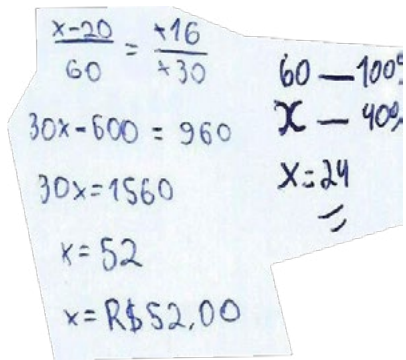 x-20/60 = +16/+30
30x-600 = 960
30x=1560
x=52
x=R$52,00
60 — 100%
x — 40%
x=24